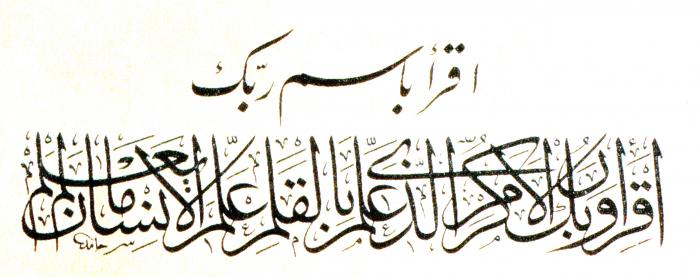 اقرأ باسم ربّك
اقرأ وربّك الأكرم الّذى علّم بالقلم علّم الإنسان ما لم يعلم